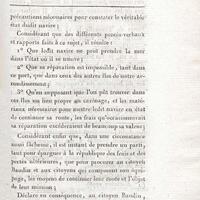 précautions nécessaires pour constater le véritable
état dudit navire;
Considérant que des différents procès-verbaux
et rapports faits à ce sujet, il résulte:
1° Que ledit navire ne peut prendre la mer
dans l'état où il se trouve;
2° Que sa réparation est impossible, tant dans
ce port, que dans ceux des autres îles de notre ar-
rondissement;
3° Qu'en supposant que l'on pût trouver dans
ces îles un lieu propre au carénage, et les maté-
riaux nécessaires pour mettre ledit navire en état
de continuer sa route, les frais qu'occasionneroit
sa réparation excéderoient de beaucoup sa valeur;
Considérant enfin que, dans une circonstance
aussi fâcheuse, il est instant de prendre un parti,
tant pour épargner à la république des frais et des
pertes ultérieures, que pour procurer au citoyen
Baudin et aux citoyens qui composent son équi-
page, les moyens de continuer leur route et l'objet
de leur mission;
Déclare en conséquence, au citoyen Baudin,